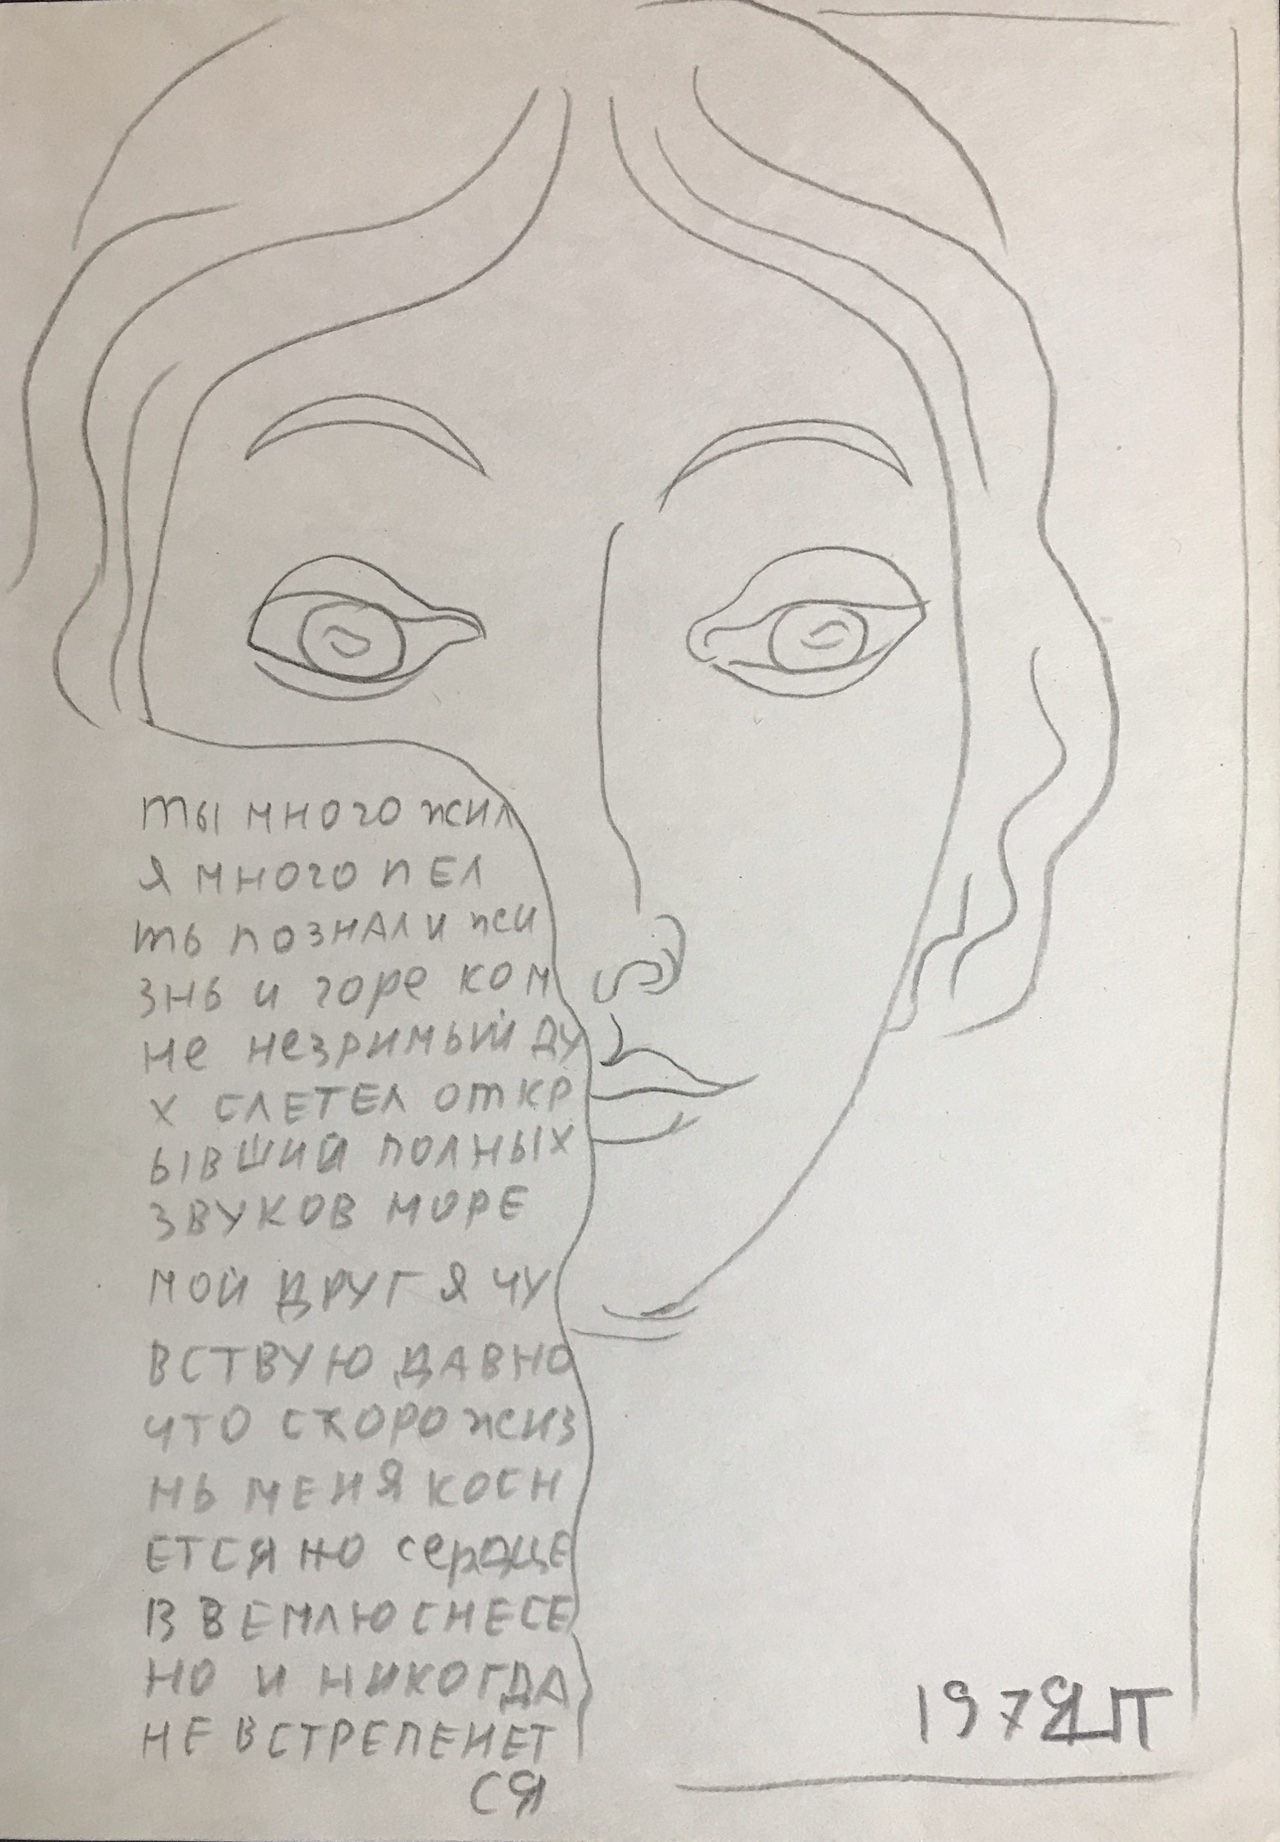 ты много жил
я много пел
ть познал и жи
знь и горе ко м
не незримый ду
х слетел откр
ывший полных
звуков море
мой друг я чу
вствую давно
что скоро жиз
нь меня косн
ется но сердце
в землю снесе
но и никогда
не встрепенет
ся